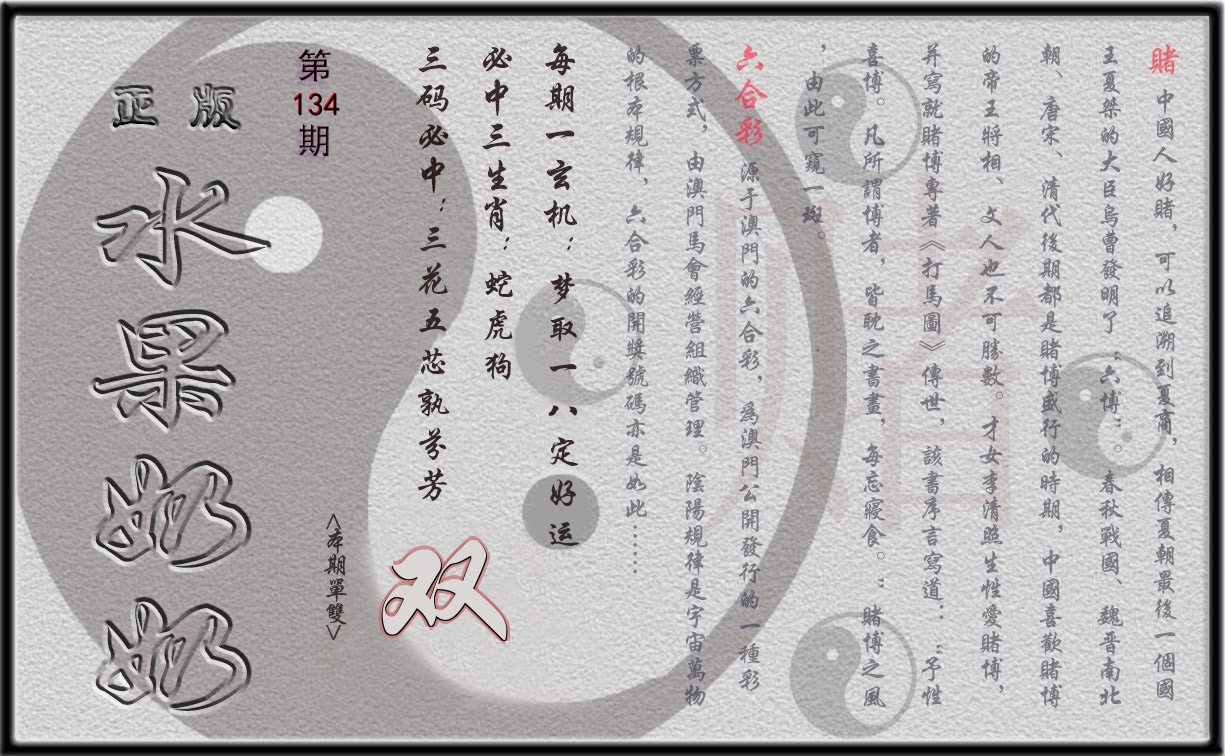 賭 中國人好賭，可以追溯到夏商，相傳夏朝最後一個國
王夏桀的大臣烏曹發明了“六博”。春秋戰國、魏晋南北
朝、唐宋、清代後期都是賭博盛行的時期，中國喜歡賭博
的帝王將相、文人也不可勝數。才女李清照生性愛賭博，
并寫就賭博專著《打馬圖》傳世，該書序言寫道：“予性
喜博。凡所謂博者，皆耽之書畫，每忘寢食。”賭博之風
，由此可窺一斑。
六合彩 源于澳門的六合彩，為澳門公開發行的一種彩
票方式，由澳門馬會經營組織管理。陰陽規律是宇宙萬物
的根本規律，六合彩的開獎號碼亦是如此……
每期一玄机：梦取一八定好运
必中三生肖：蛇虎狗
三码必中：三花五芯孰芬芳
双
<本期單雙>
第
134
期
正版
水果奶奶
賭